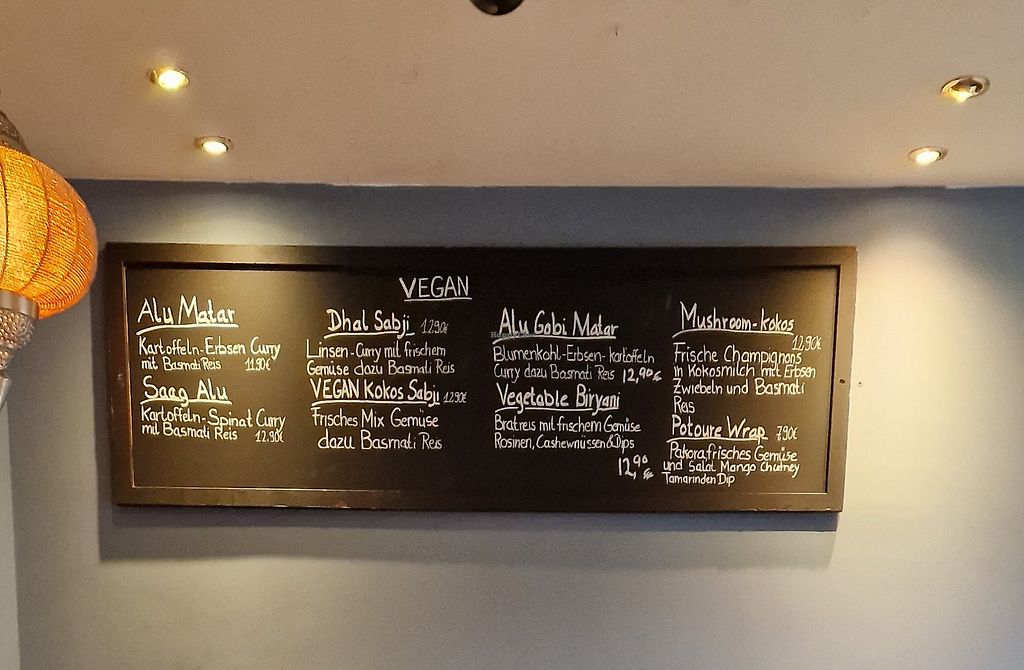 VEGAN
Alu Matar
Kartoffeln-Erbsen Curry
mit Basmati Reis 11.90€
Saag Alu
Kartoffeln-Spinat Curry
mit Basmati Reis 12.90€
Dhal Sabji 12.90€
Linsen-Curry mit frischem
Gemüse dazu Basmati Reis
VEGAN Kokos Sabji 12.90€
Frisches Mix Gemüse
dazu Basmati Reis
Alu Gobi Matar
Blumenkohl-Erbsen-kartoffeln
Curry dazu Basmati Reis 12,90€
Vegetable Biryani
Bratreis mit frischem Gemüse
Rosinen, Cashewnüssen & Dips
12,90€
Mushroom-kokos
12,90€
Frische Champignons
in Kokosmilch mit Erbsen
Zwiebeln und Basmati
Reis
Potoure Wrap 7.90€
Pakora, frisches Gemüse
und Salat Mango Chutney
Tamarinden Dip